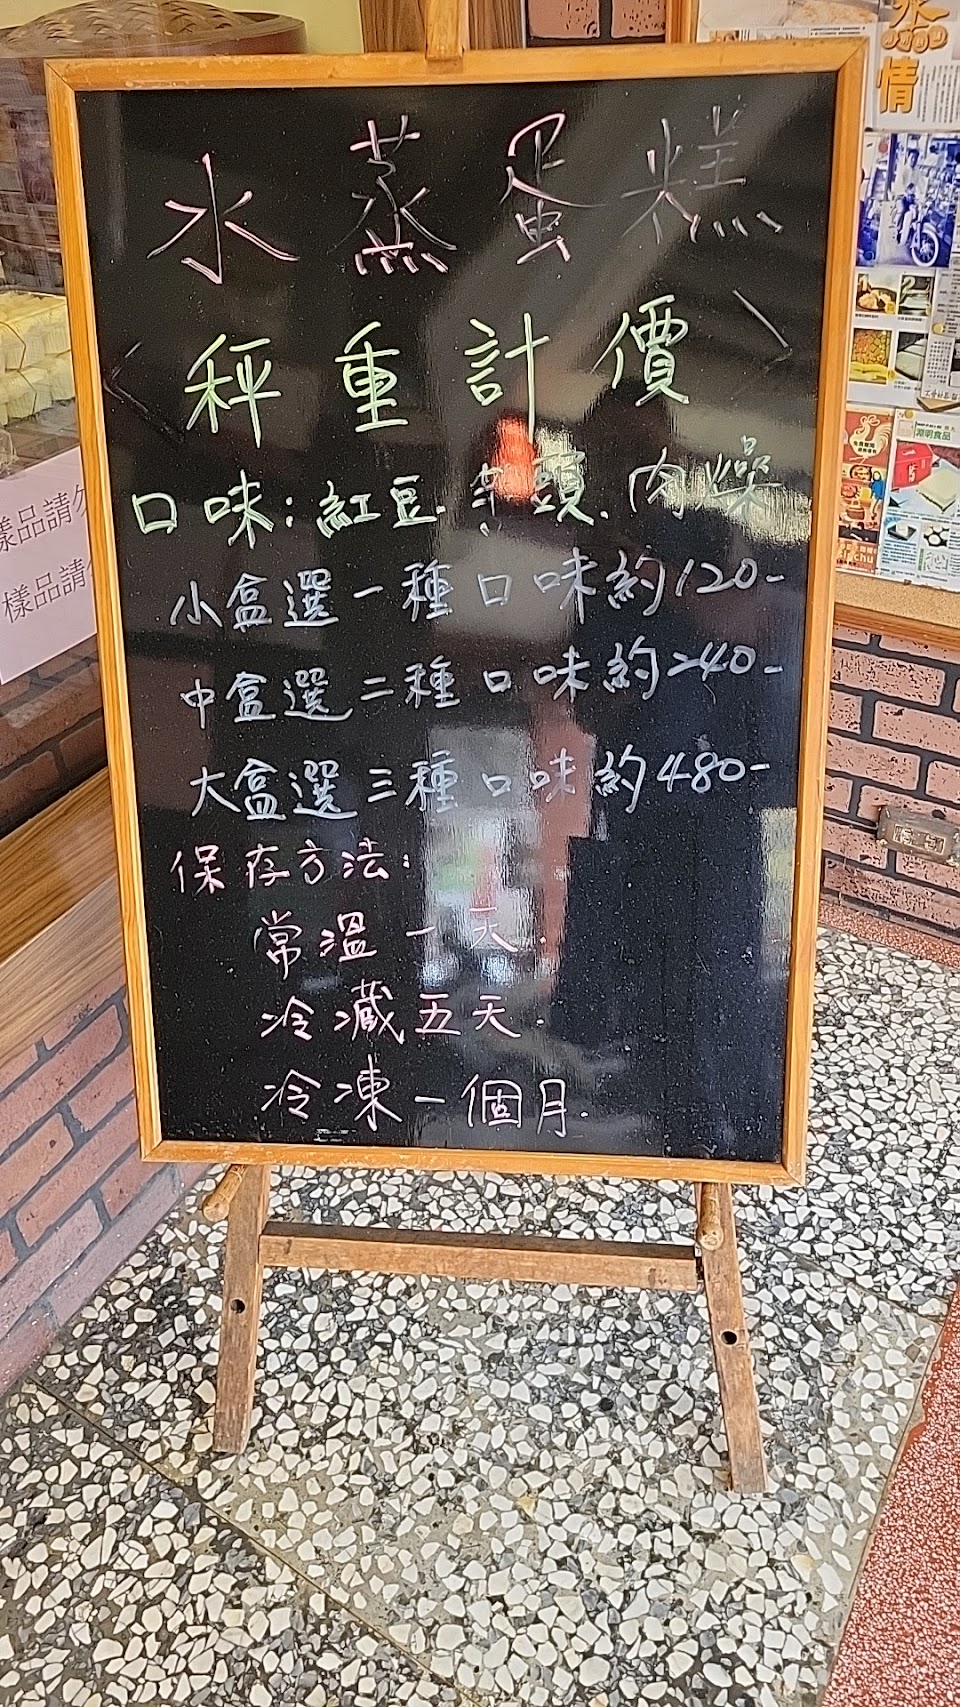 水蒸蛋糕
〈秤重計價〉
口味:紅豆.芋頭.肉燥
小盒選一種口味約120-
中盒選二種口味約240-
大盒選三種口味約480-
保存方法:
常溫一天.
冷藏五天.
冷凍一個月.
樣品請勿
樣品請勿
情
湖明食品